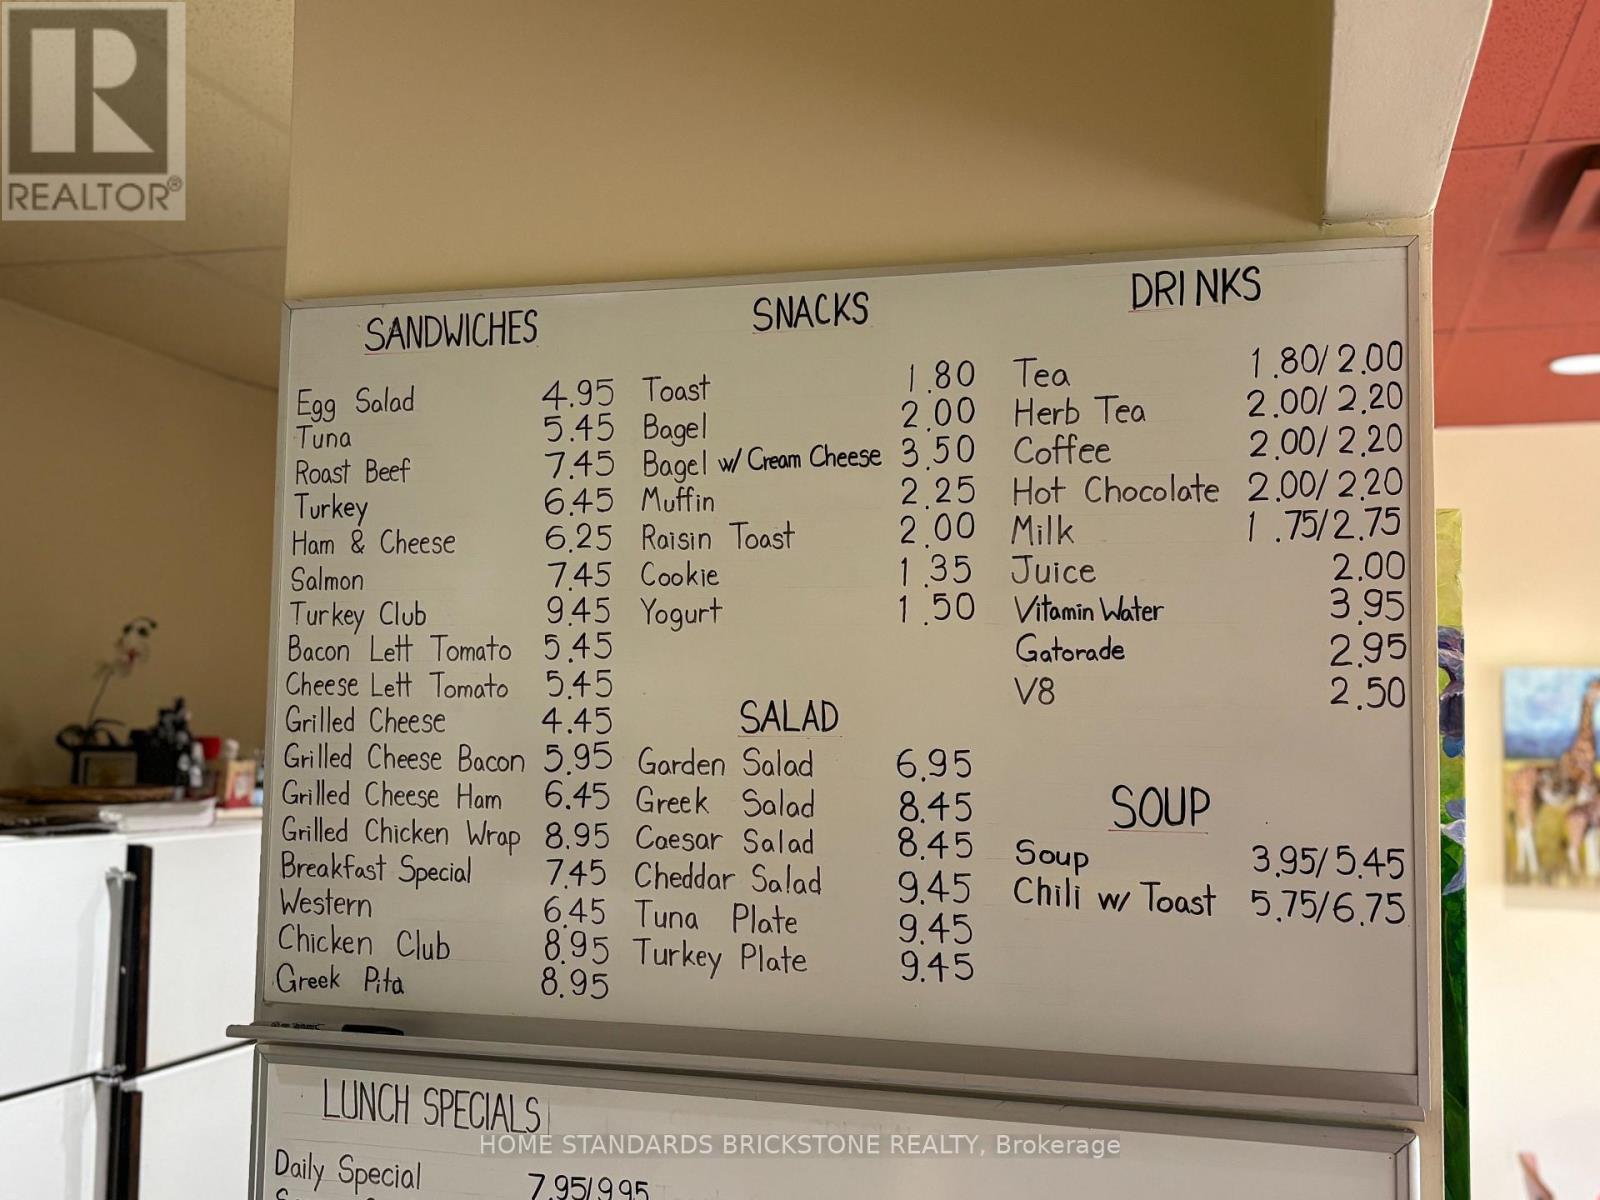 REALTOR®
SANDWICHES
Egg Salad 4.95
Tuna 5.45
Roast Beef 7.45
Turkey 6.45
Ham & Cheese 6.25
Salmon 7.45
Turkey Club 9.45
Bacon Lett Tomato 5.45
Cheese Lett Tomato 5.45
Grilled Cheese 4.45
Grilled Cheese Bacon 5.95
Grilled Cheese Ham 6.45
Grilled Chicken Wrap 8.95
Breakfast Special 7.45
Western 6.45
Chicken Club 8.95
Greek Pita 8.95
SNACKS
Toast 1.80
Bagel 2.00
Bagel w/ Cream Cheese 3.50
Muffin 2.25
Raisin Toast 2.00
Cookie 1.35
Yogurt 1.50
SALAD
Garden Salad 6.95
Greek Salad 8.45
Caesar Salad 8.45
Cheddar Salad 9.45
Tuna Plate 9.45
Turkey Plate 9.45
DRINKS
Tea 1.80/2.00
Herb Tea 2.00/2.20
Coffee 2.00/2.20
Hot Chocolate 2.00/2.20
Milk 1.75/2.75
Juice 2.00
Vitamin Water 3.95
Gatorade 2.95
V8 2.50
SOUP
Soup 3.95/5.45
Chili w/ Toast 5.75/6.75
LUNCH SPECIALS
Daily Special 7.95/9.95
HOME STANDARDS BRICKSTONE REALTY, Brokerage